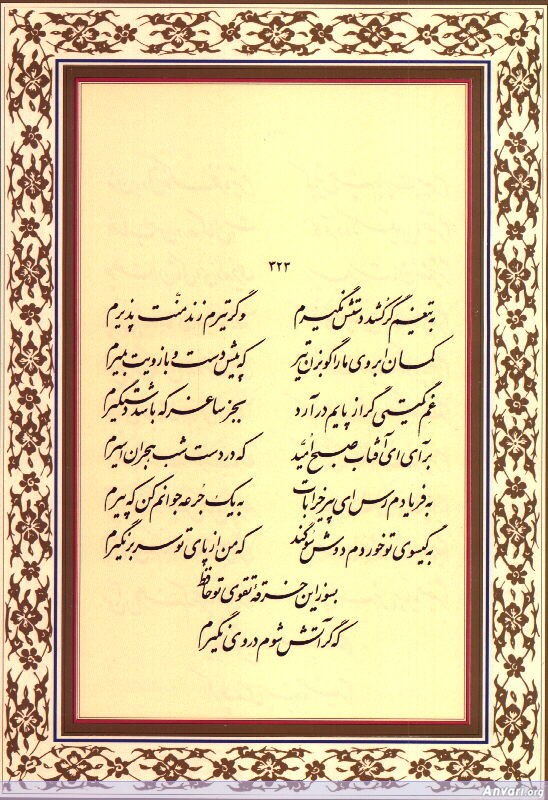 ۳۲۳
به تیغم گر کشد دستش نگیرم وگر تیرم زند منّت پذیرم
کمان ابروی ما را گو بزن تیر که پیش دست و بازویت بمیرم
غم گیتی گر از پایم درآرد بجز ساغر که باشد دستگیرم
برآی ای آفتاب صبح امّید که در دست شب هجران اسیرم
به فریادم رس ای پیر خرابات به یک جرعه جوانم کن که پیرم
به گیسوی تو خوردم دوش سوگند که من از پای تو سر برنگیرم
بسوز این خرقهٔ تقوی تو حافظ
که گر آتش شوم در وی نگیرم
Anvari.org